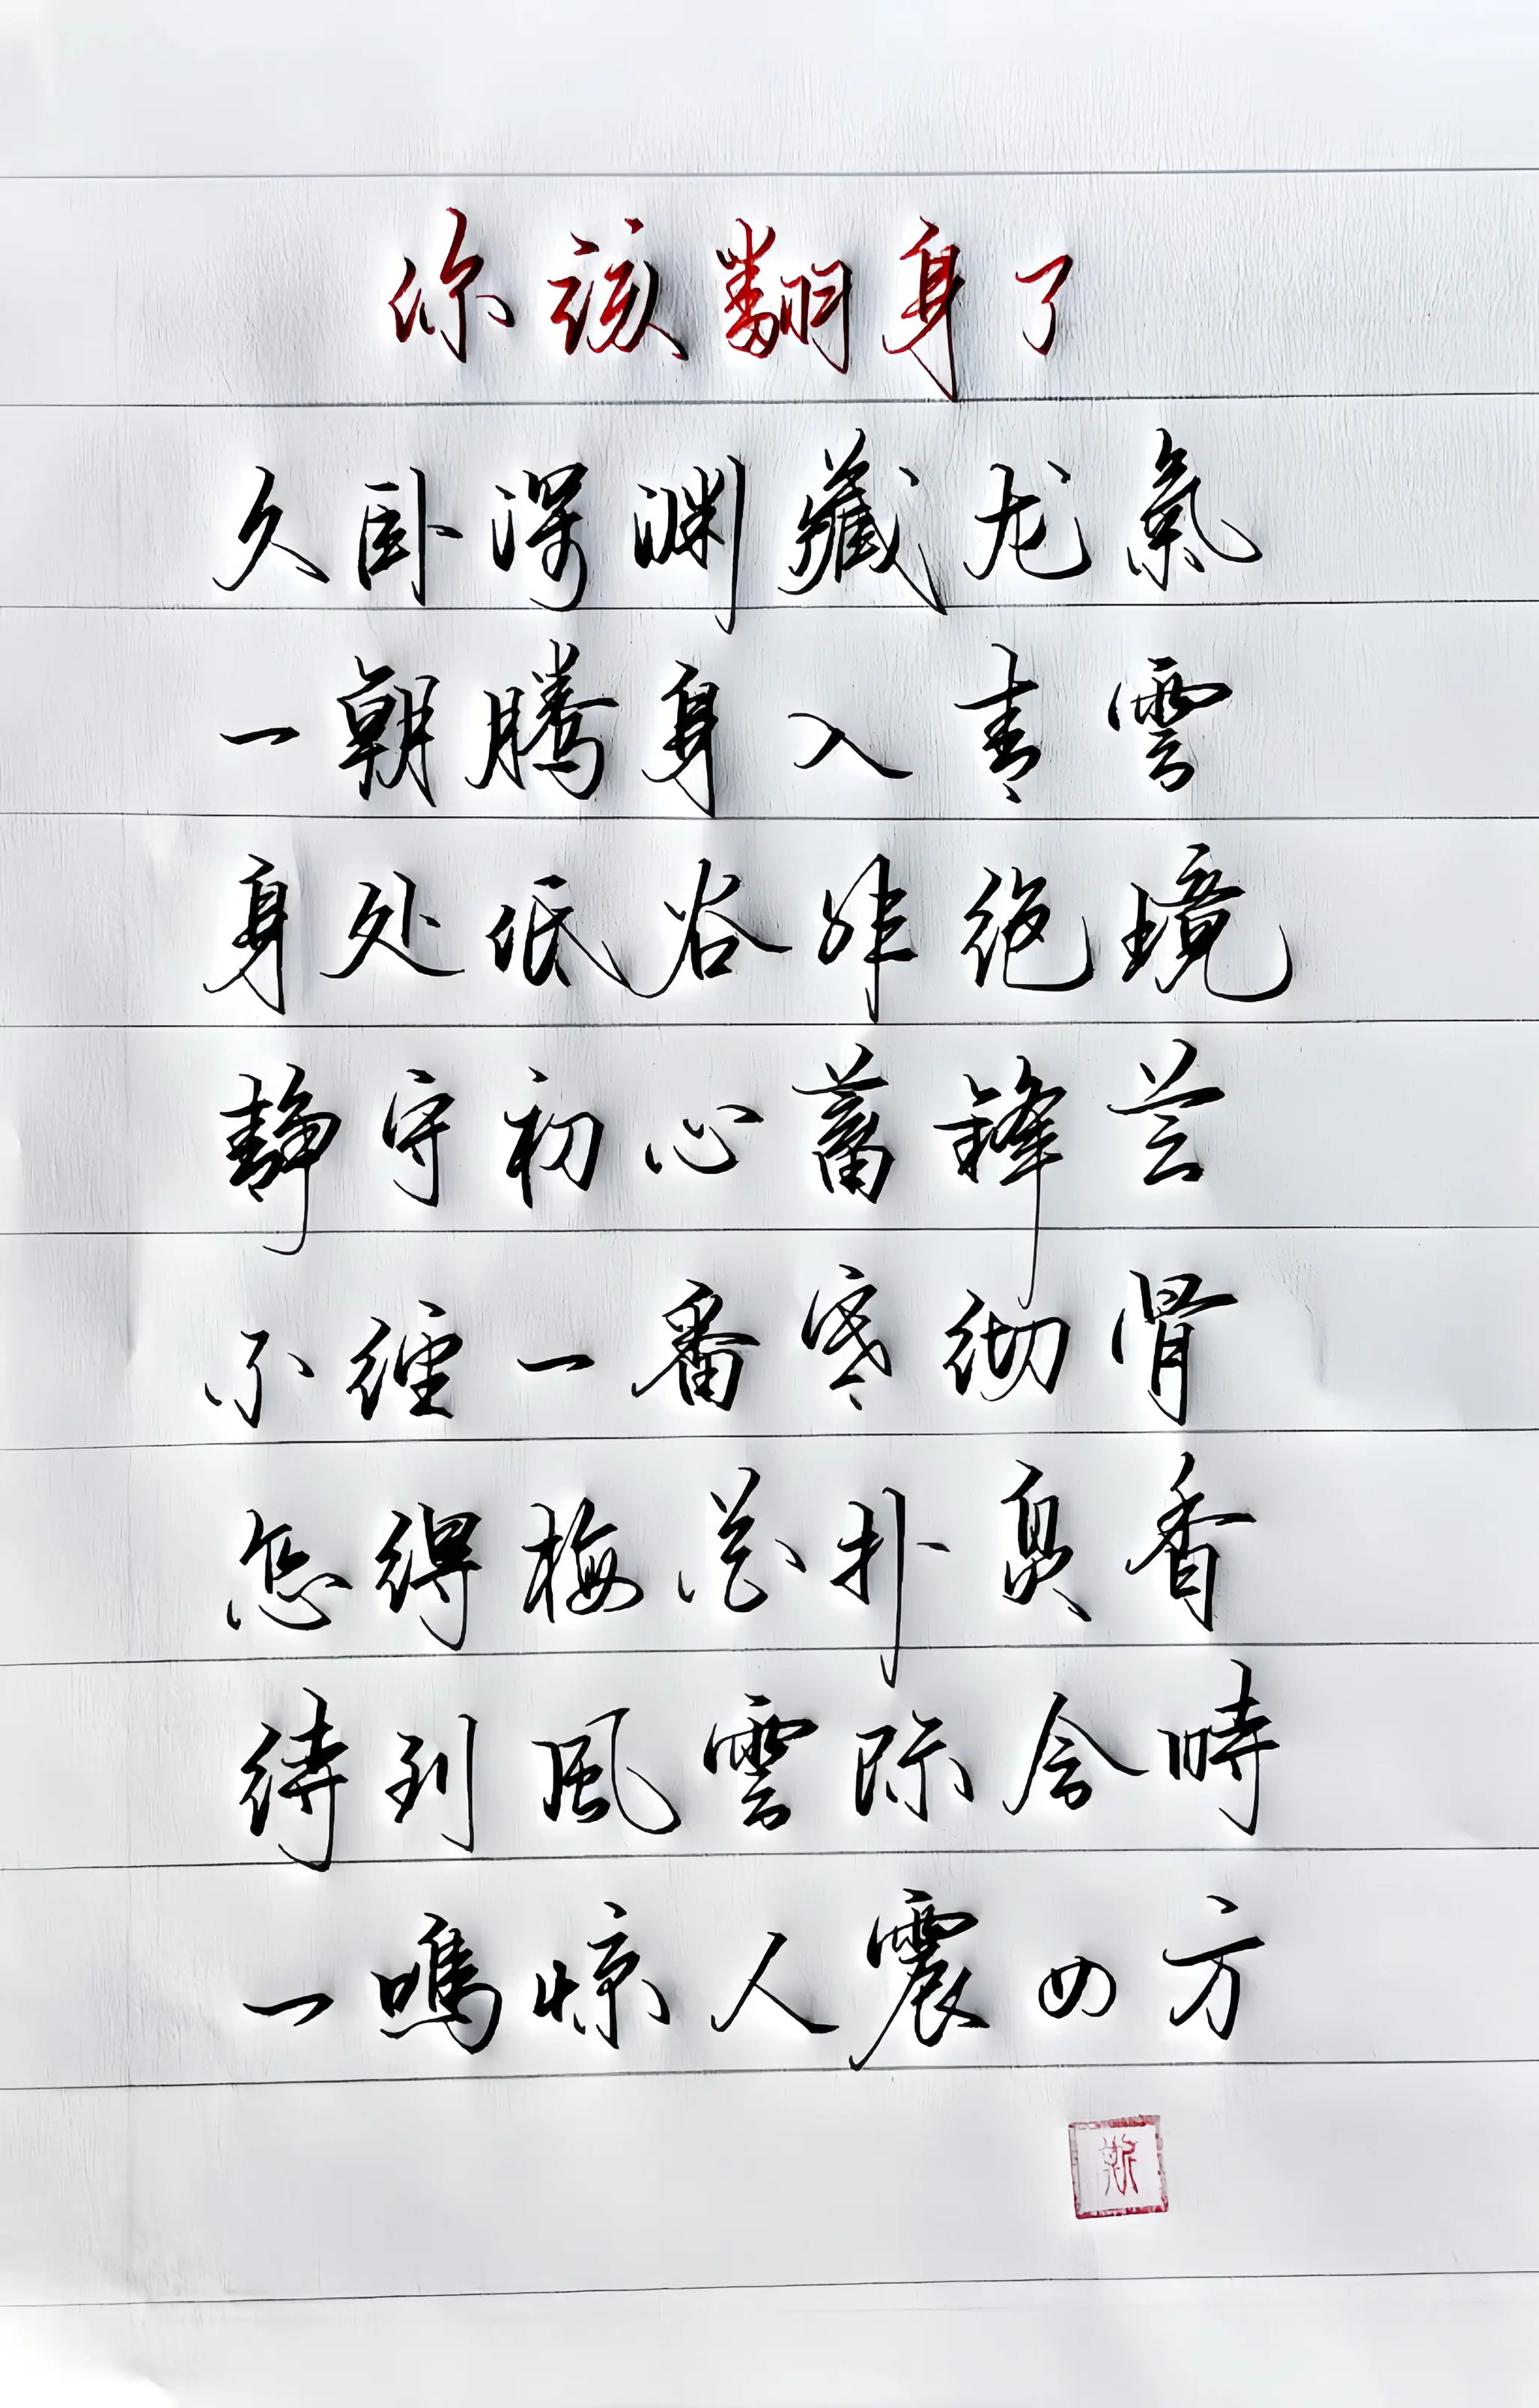 你该翻身了
久卧深渊藏龙氣
一朝腾身入青雲
身处低谷非绝境
静守初心蓄鋒芒
不经一番寒彻骨
怎得梅花扑鼻香
待到風雲际会時
一鳴惊人震四方